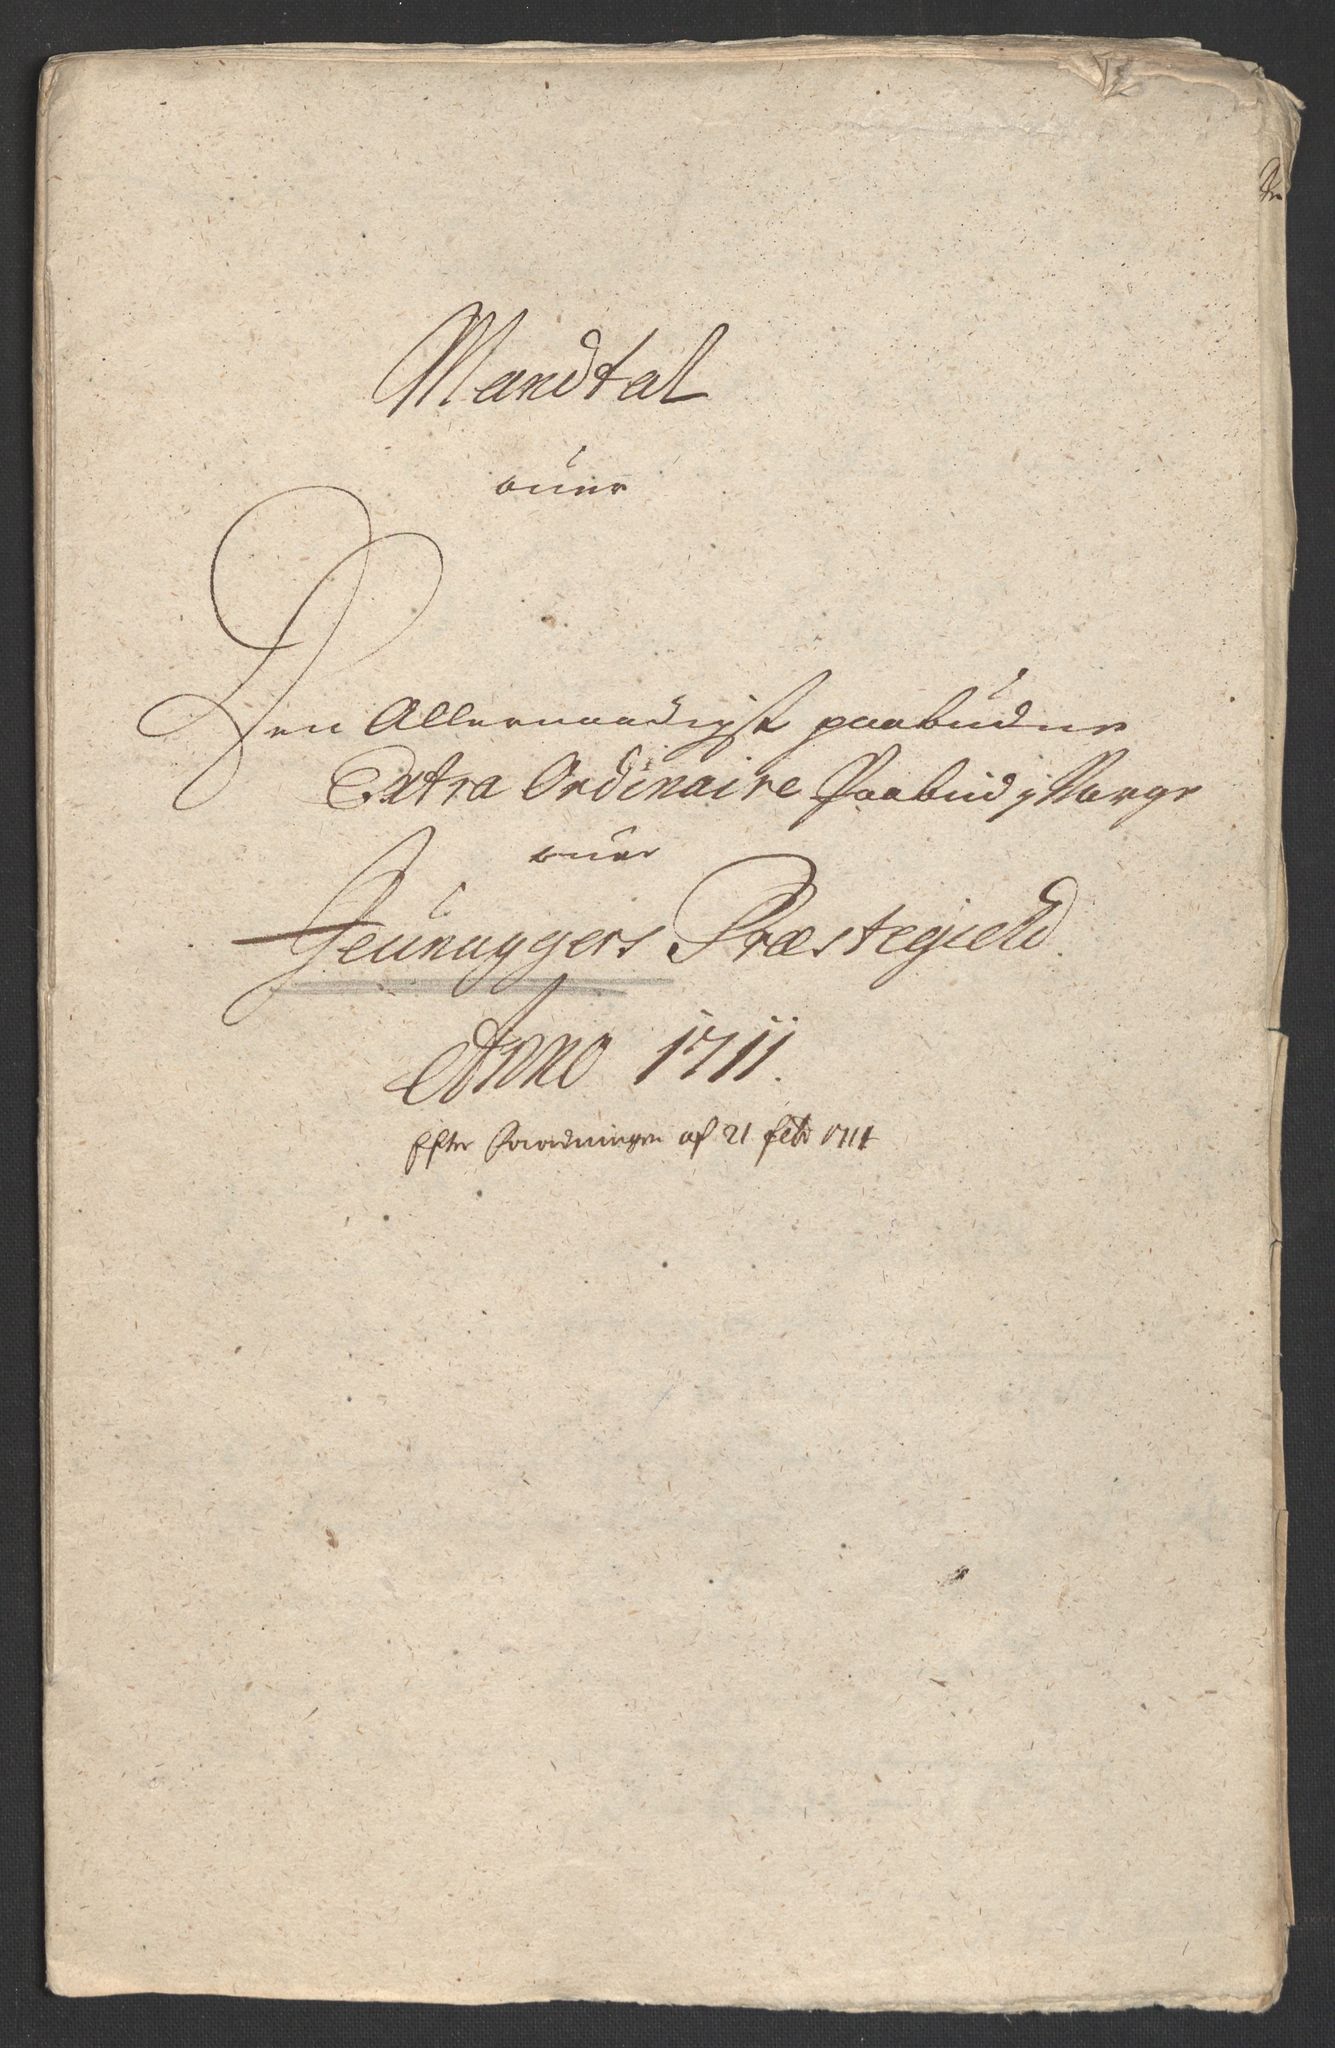 Mandtal
ouer
Den Allernaadigst paabudne
Extra Ordinaire Paabud i Norge
ouer
Jeunaggers Præstegield.
Anno 1711.
Efter Forordningen af 21 febr 1711